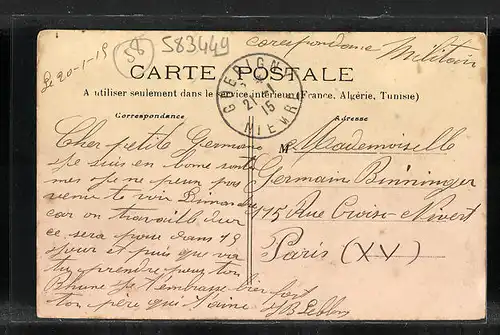 Le 20-1-15
58
583449
Corespondance Militaire
CARTE POSTALE
A utiliser seulement dans le service intérieur (France, Algérie, Tunisie)
GUERIGNY
21-1
15
NIEVRE
Correspondance
Cher petite Germaine
Je suis en bonne santé
mes je ne peux pas
venir te voir Dimanche
car on travaille dur
ce sera pour dans 15
jour et puis que vas
tu prendre pour ton
Rhume Je t'embrasse bien fort
ton père qui t'aime
JB Leblanc
Adresse
M Mademoiselle
Germain Binninger
175 Rue Croix-Nivert
Paris (XV)